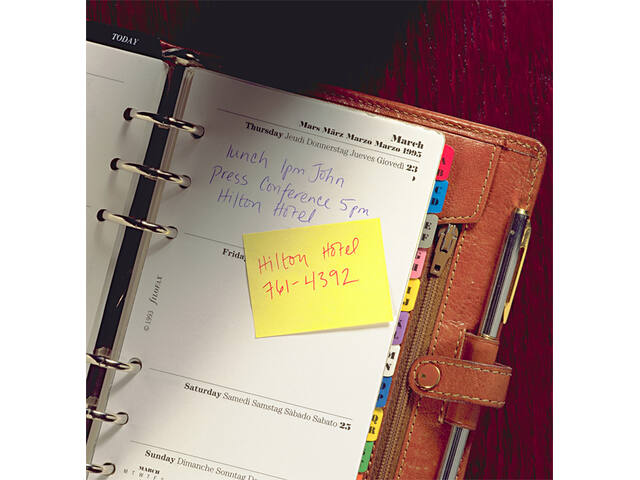 TODAY
March
Mars März Marzo Marzo 1995
Thursday Jeudi Donnerstag Jueves Giovedì 23
lunch 1pm John
Press Conference 5pm
Hilton Hotel
Frida
Hilton Hotel
761-4392
Saturday Samedi Samstag Sàbado Sabato 25
Sunday Dimanche Sonntag Do
MARCH
M T W T F S
© 1993 FILOFAX
A
B
C
D
E
F
G
H
I
J
K
L
M
N
O
P
Q
R